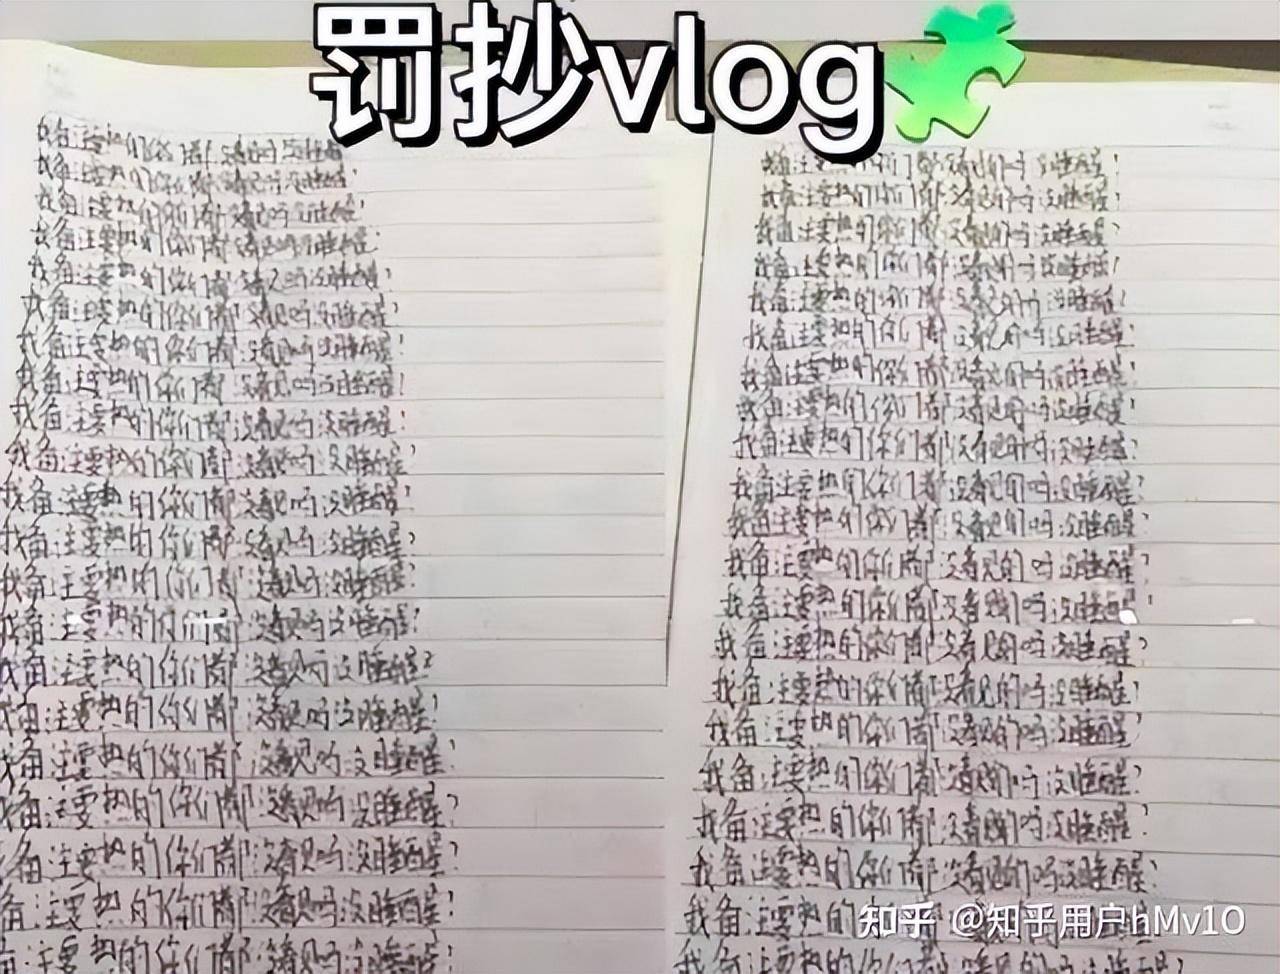 罚抄vlog
我备注要热的你们都没看见吗没睡醒?
我备注要热的你们都没看见吗没睡醒?
我备注要热的你们都没看见吗没睡醒?
我备注要热的你们都没看见吗没睡醒?
我备注要热的你们都没看见吗没睡醒?
我备注要热的你们都没看见吗没睡醒?
我备注要热的你们都没看见吗没睡醒?
我备注要热的你们都没看见吗没睡醒?
我备注要热的你们都没看见吗没睡醒?
我备注要热的你们都没看见吗没睡醒?
我备注要热的你们都没看见吗没睡醒?
我备注要热的你们都没看见吗没睡醒?
我备注要热的你们都没看见吗没睡醒?
我备注要热的你们都没看见吗没睡醒?
我备注要热的你们都没看见吗没睡醒?
我备注要热的你们都没看见吗没睡醒?
我备注要热的你们都没看见吗没睡醒?
我备注要热的你们都没看见吗没睡醒?
备注要热的你们都没看见吗没睡醒?
备注要热的你们都没看见吗没睡醒?
备注要热的你们都没看见吗没睡醒?
我备注要热的你们都没看见的吗没睡醒?
我备注要热的你们都没看见的吗没睡醒?
我备注要热的你们都没看见的吗没睡醒?
我备注要热的你们都没看见的吗没睡醒?
我备注要热的你们都没看见的吗没睡醒?
我备注要热的你们都没看见的吗没睡醒?
我备注要热的你们都没看见的吗没睡醒?
我备注要热的你们都没看见的吗没睡醒?
我备注要热的你们都没看见的吗没睡醒?
我备注要热的你们都没看见的吗没睡醒?
我备注要热的你们都没看见的吗没睡醒?
我备注要热的你们都没看见的吗没睡醒?
我备注要热的你们都没看见的吗没睡醒?
我备注要热的你们都没看见的吗没睡醒?
我备注要热的你们都没看见的吗没睡醒?
我备注要热的你们都没看见的吗没睡醒?
我备注要热的你们都没看见的吗没睡醒?
我备注要热的你们都没看见的吗没睡醒?
我备注要热的你们都没看见的吗没睡醒?
我备注要热的
我备注要热的你们都没看见的吗没睡醒?
知乎 @知乎用户hMv1O